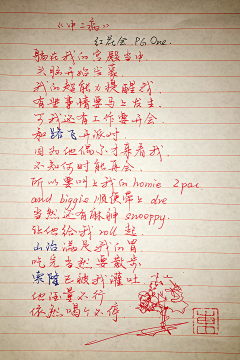 《中二病》
红花会 PG One.
躺在我的宫殿当中
头脑开始发雾
我的超能力提醒我
有些事情要马上发生
可我还有工作要开会
和路飞开派对
因为他偶尔才来看我
不知何时能再会
所以要叫上我的homie 2pac
and biggie 顺便带上dre
当然还有麻神snoopy.
让他给我roll起
山治满足我的胃
吃完当然要散步
索隆已被我灌吐
他酒量不行
依然喝个不停